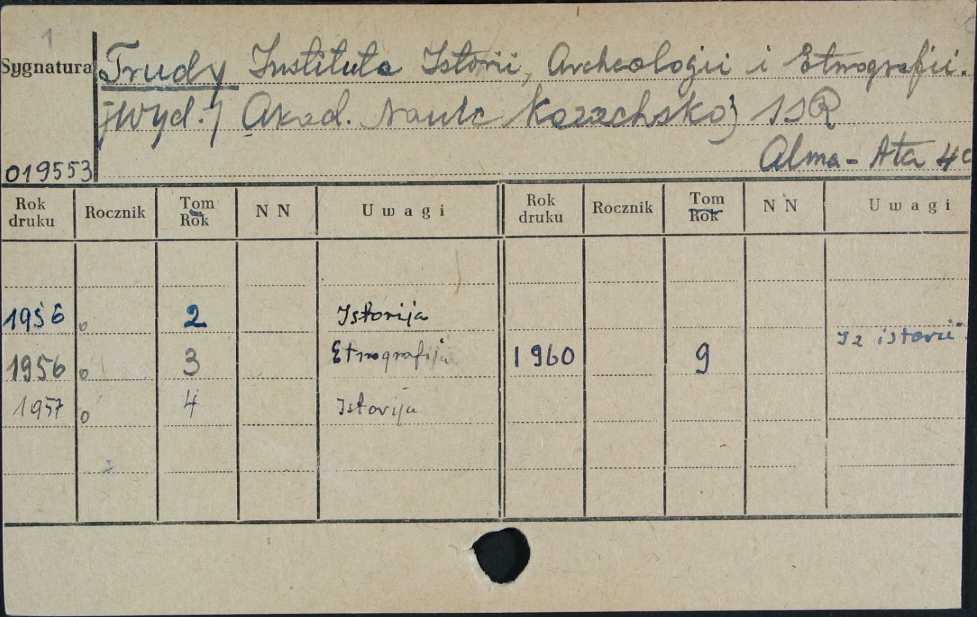 1
Sygnatura Trudy Instituta Istorii, Archeologii i Etnografii.
[Wyd.] Akad. Nauk Kazachskoj SSR
019553 Alma-Ata 4°
Rok druku Rocznik Tom Rok N N Uwagi Rok druku Rocznik Tom Rok N N Uwagi
1956 o 2 Istorija
1956 o 3 Etnografija 1960 9 Iz istorii
1957 o 4 Istorija